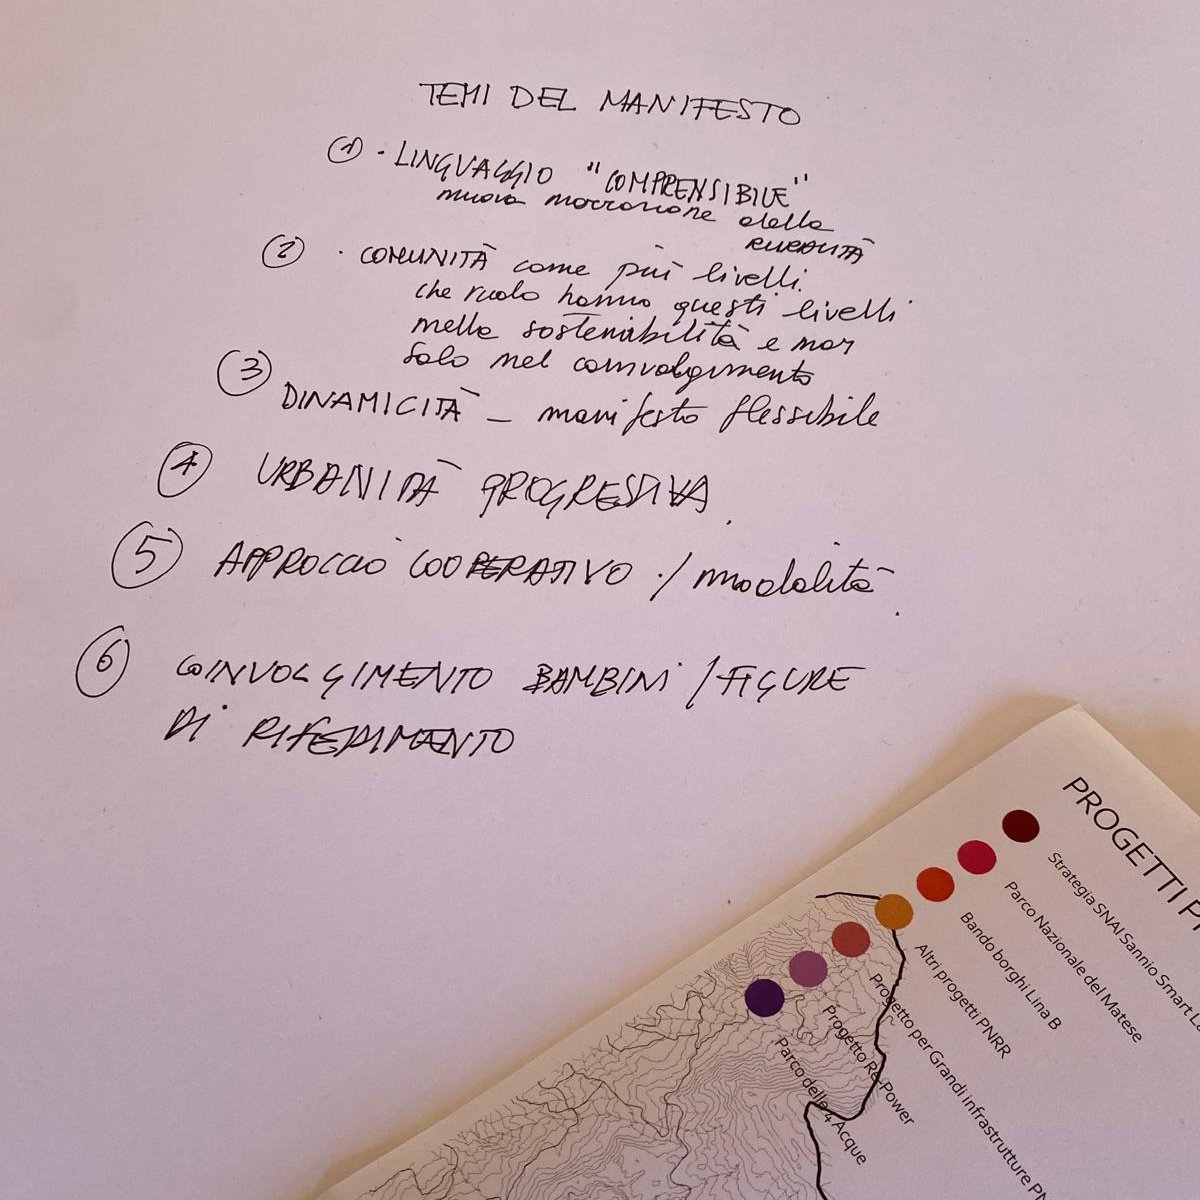 TEMI DEL MANIFESTO
① · LINGUAGGIO "COMPRENSIBILE"
nuova narrazione della
RURALITÀ
② · COMUNITÀ come più livelli.
che ruolo hanno questi livelli
nella sostenibilità e non
solo nel coinvolgimento
③ DINAMICITÀ - manifesto flessibile
④ URBANITÀ PROGRESSIVA.
⑤ APPROCCIO COOPERATIVO / modalità.
⑥ COINVOLGIMENTO BAMBINI / FIGURE
DI RIFERIMENTO
PROGETTI
Strategia SNAI Sannio Smart
Parco Nazionale del Matese
Bando borghi Lina B
Altri progetti PNRR
Progetto per Grandi infrastrutture
Progetto Re-Power
Parco delle 4 Acque